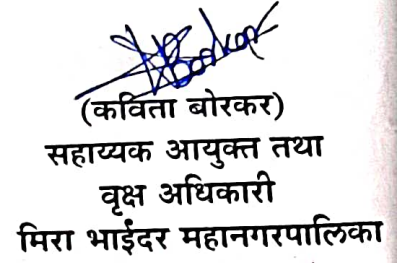 (कविता बोरकर)
सहाय्यक आयुक्त तथा
वृक्ष अधिकारी
मिरा भाईंदर महानगरपालिका